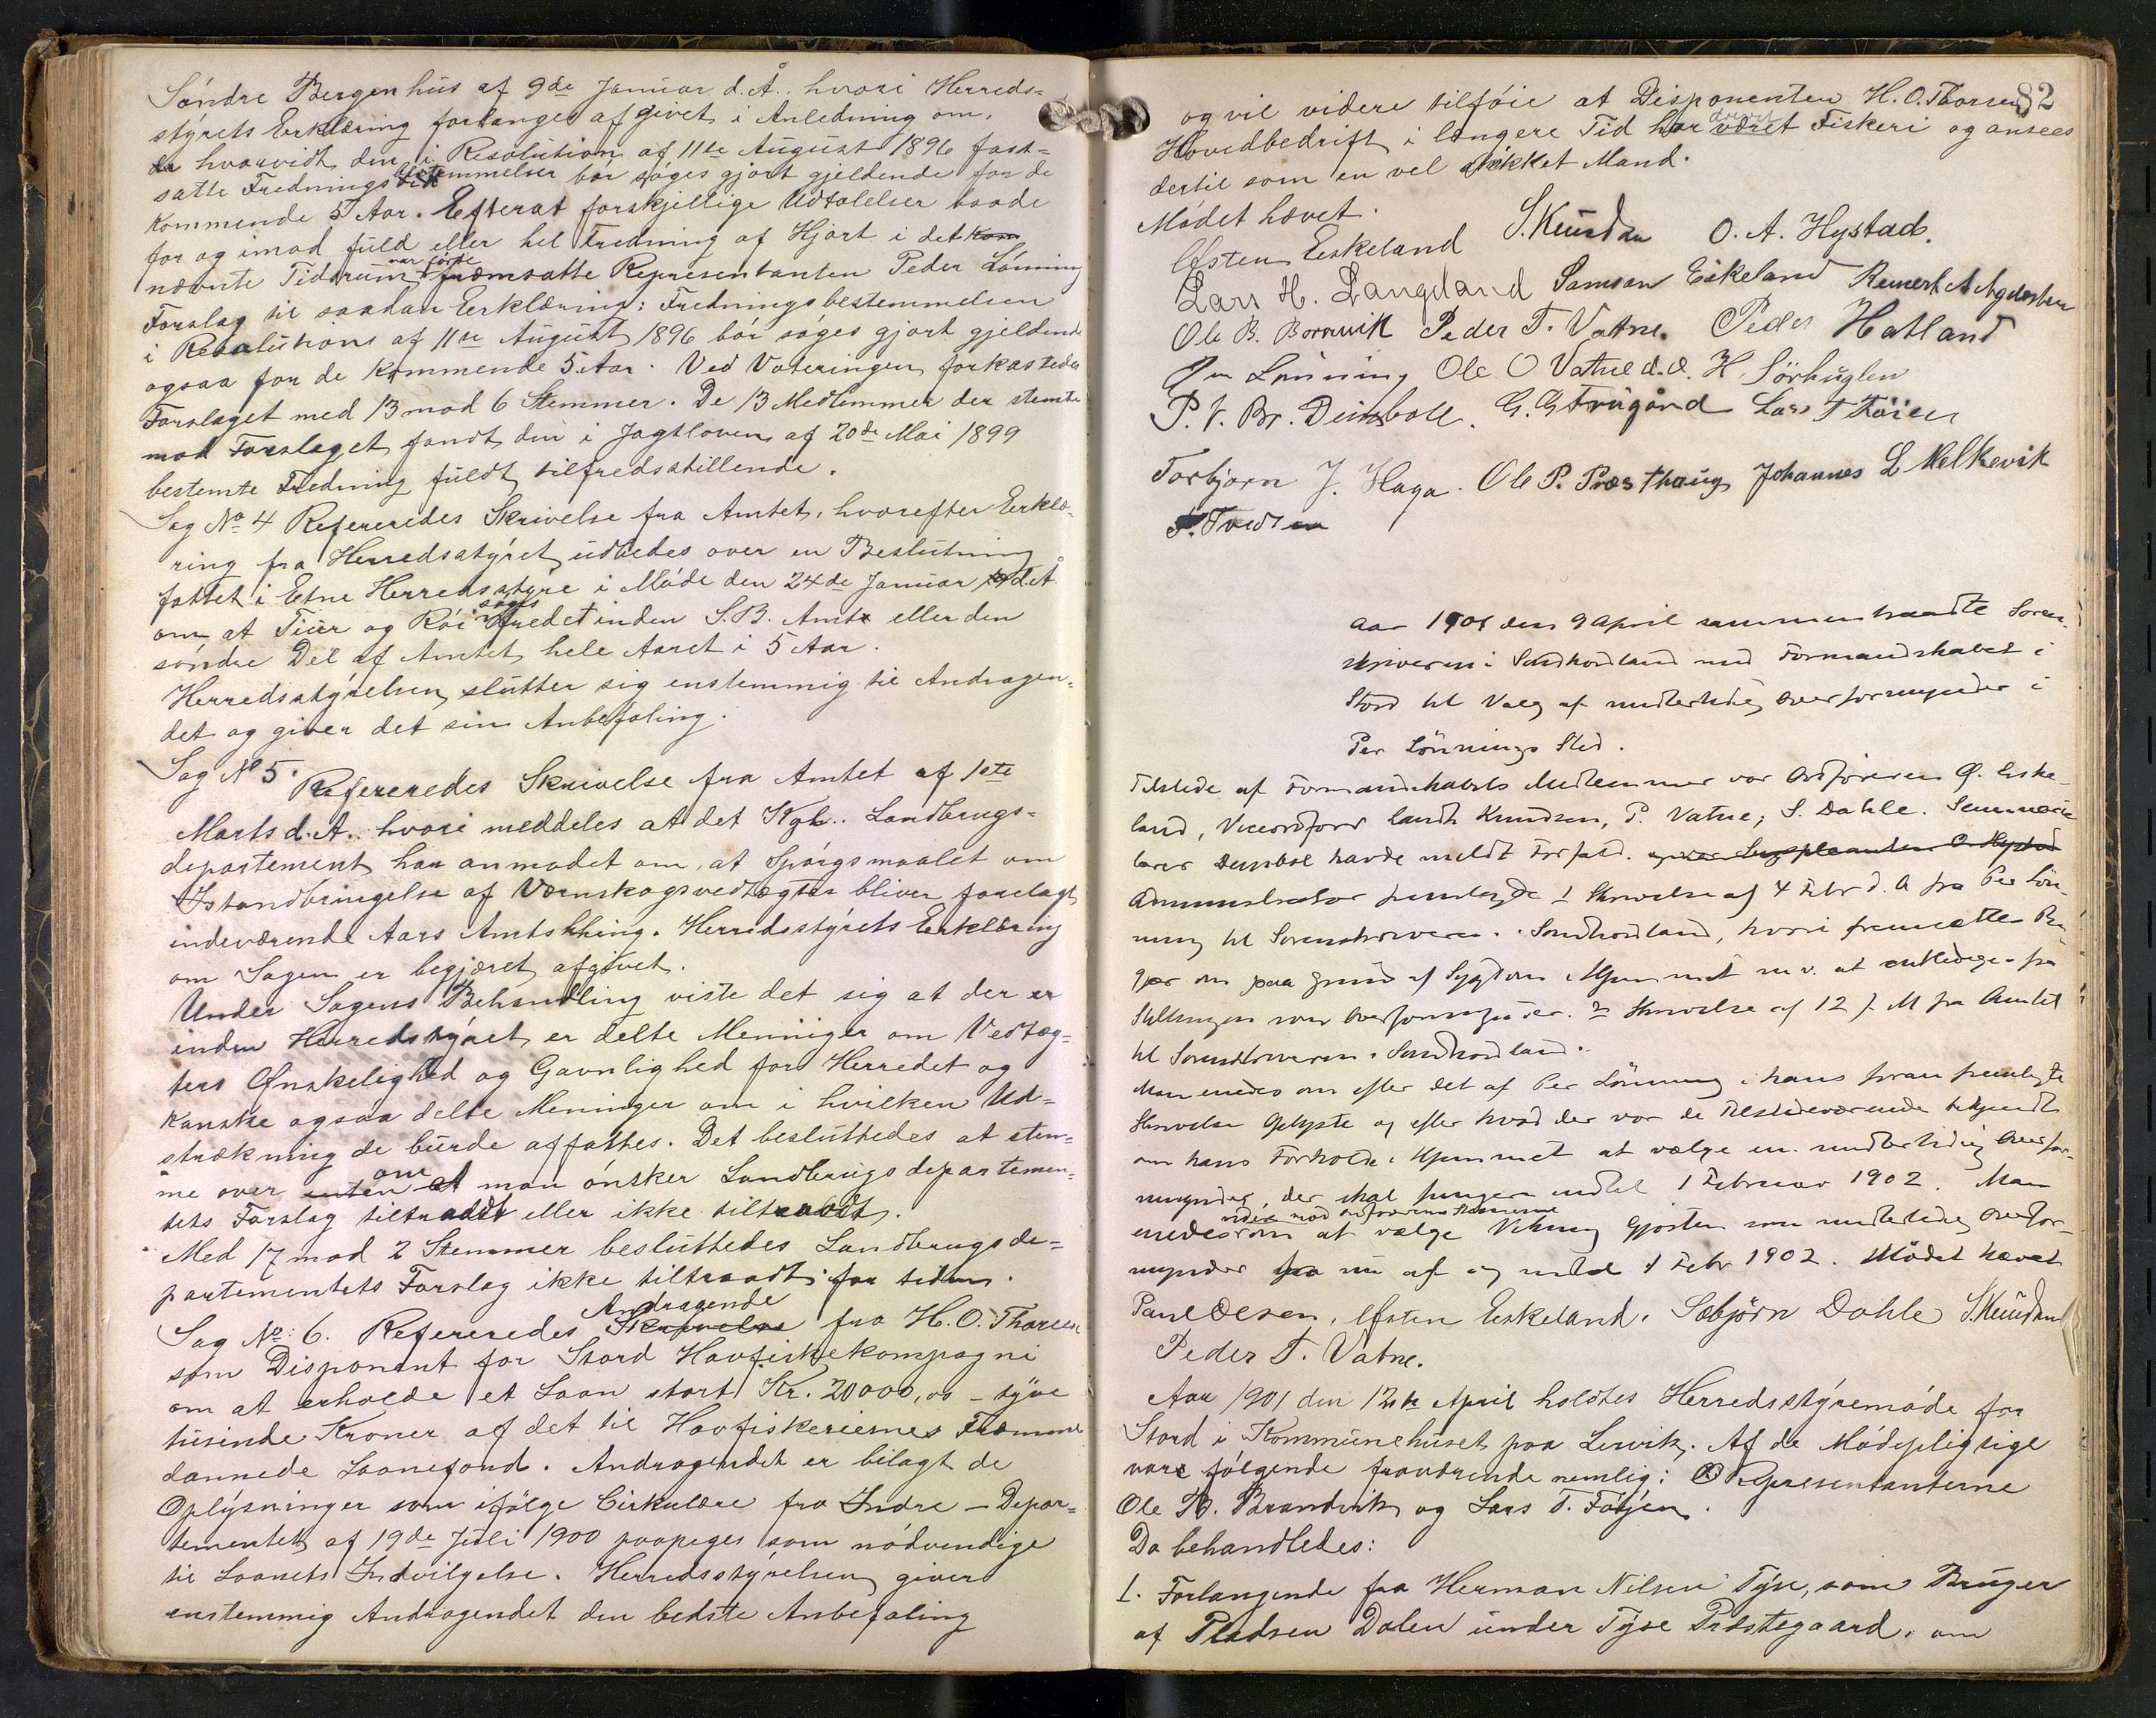 Søndre Bergenhus af 9de Januar d.A. hvori Herreds=
styrets Erklæring forlanges afgivet i Anledning om,
hvorvidt den i Resolution af 11te August 1896 fast=
satte Fredningsbestemmelser bør søges gjort gjeldende for de
kommende 5 Aar. Efterat forskjellige Udtalelser baade
for og imod fuld eller hel Fredning af Hjort i det
nævnte Tidsrum var førte fræmsatte Representanten Peder Lönning
Forslag til saadan Erklæring: Fredningsbestemmelsen
i Resolutions af 11te August 1896 bør søges gjort gjeldende
ogsaa for de kommende 5 Aar. Ved Voteringen forkastedes
Forslaget med 13 mod 6 Stemmer. De 13 Medlemmer der stemte
mod Forslaget fandt den i Jagtloven af 20de Mai 1899
bestemte Fredning fuldt tilfredsstillende.
Sag No 4 Refereredes Skrivelse fra Amtet, hvorefter Erklæ-
ring fra Herredsstyret udbedes over en Beslutning
fattet i Etne Herredsstyre i Møde den 24de Januar d.A
om at Tiur og Röi søges fredet inden S.B. Amt eller den
søndre Del af Amtet hele Aaret i 5 Aar.
Herredsstyrelsen slutter sig enstemmig til Andragen=
det og giver det sin Anbefaling.
Sag No 5. Refereredes Skrivelse fra Amtet af 1ste
Marts d.A. hvori meddeles at det Kgl. Landbrugs=
departement har anmodet om, at Spørgsmaalet om
Istandbringelse af Værnskogsvedtægter bliver forelagt
indeværende Aars Amtsthing. Herredsstyrets Erklæring
om Sagen er begjæret afgivet.
Under Sagens Behandling viste det sig at der er
inden Herredstyret er delte Meninger om Vedtæg=
ters Ønskelighed og Gavnlighed for Herredet og
kanske ogsaa delte Meninger om i hvilken Ud=
strækning de burde affattes. Det besluttedes at stem=
me over enten om at man ønsker Landbrugsdepartemen=
tets Forslag tiltraadt eller ikke tiltraadt.
Med 17 mod 2 Stemmer besluttedes Landbrugsde=
partementets Forslag ikke tiltraadt for tiden.
Sag No: 6. Refereredes Skrivelse Andragende fra H.O. Thorsen
som Disponent for Stord Havfiskekompagni
om at erholde et Laan stort Kr. 20000,00 – tyve
tusinde Kroner af det til Havfiskeriernes Fræmme
dannede Laanefond. Andragendet er bilagt de
Oplysninger som ifølge Cirkulære fra Indre – Depar=
tementet af 19de Juli 1900 paapeges som nødvendige
til Laanets Indvilgelse. Herredsstyrelsen giver
enstemmig Andragendet den bedste Anbefaling
82
og vil videre tilføie at Disponenten H.O. Thorsen
Hovedbedrift i længere Tid har været drevet Fiskeri og ansees
dertil som en vel skikket Mand.
Mødet hævet.
Østen Eskeland S. Knudsen O. A. Hystad.
Lars H. Langeland Samson Eskeland Reinert A Agdestein
Ole B. Borrevik Peder T. Vatne. Peder Hatland
Per Lönning Ole O Vatne d.æ. H. Sørhuglen
P. V. Br. Deinboll. G. G Frugård Lars T Föien
Torbjørn J. Haga. Ole P. Præsthaug Johannes L Melkevik
T. Tvedten
Aar 1901 den 9 April sammentraadte Soren-
skriveren i Søndhordland med Formandskabet i
Stord til Valg af midlertidig Overformynder i
Per Lönnings Sted.
Tilstede af Formandskabets Medlemmer var Ordføreren Ø. Eske-
land, Viceordfører landh Knudsen, P. Vatne, S. Dahle. Seminarie
lærer Deinboll havde meldt Forfald. Suppleanten O. Hystad
Administrator fremlagde 1 Skrivelse af 4 Febr d. A fra Per Lön-
ning til Sorenskriveren i Søndhordland, hvori fremsættes Be-
gjær om paa Grund af Sygdom i Hjemmet m.v. at entlediges fra
Stillingen som Overformynder. 2 Skrivelse af 12 f. M fra Amtet
til Sorenskriveren i Søndhordland.
Man enedes om efter det af Per Lönning i hans foran fremlagte
Skrivelse Oplyste og efter hvad der var de Tilstedeværende bekjendt
om hans Forholde i Hjemmet at vælge en midlertidig Overfor-
mynder, der skal fungere indtil 1 Februar 1902. Man
enedes om at vælge Viking Gjøsten som midlertidig Overfor-
mynder fra nu af og indtil 1 Febr 1902. Mødet hævet
Paul Olsen, Østen Eskeland. Sæbjörn Dahle S. Knudsen
Peder T. Vatne.
Aar 1901 den 12te April holdtes Herredsstyremøde for
Stord i Kommunehuset paa Lervik. Af de Mødepligtige
vare følgende fraværende nemlig: Representanterne
Ole B. Brandvik og Lars T. Føyen.
Da behandledes:
1. Forlangende fra Herman Nilsen Tyse, som Bruger
af Pladsen Dalen under Tyse Præstegaard, om